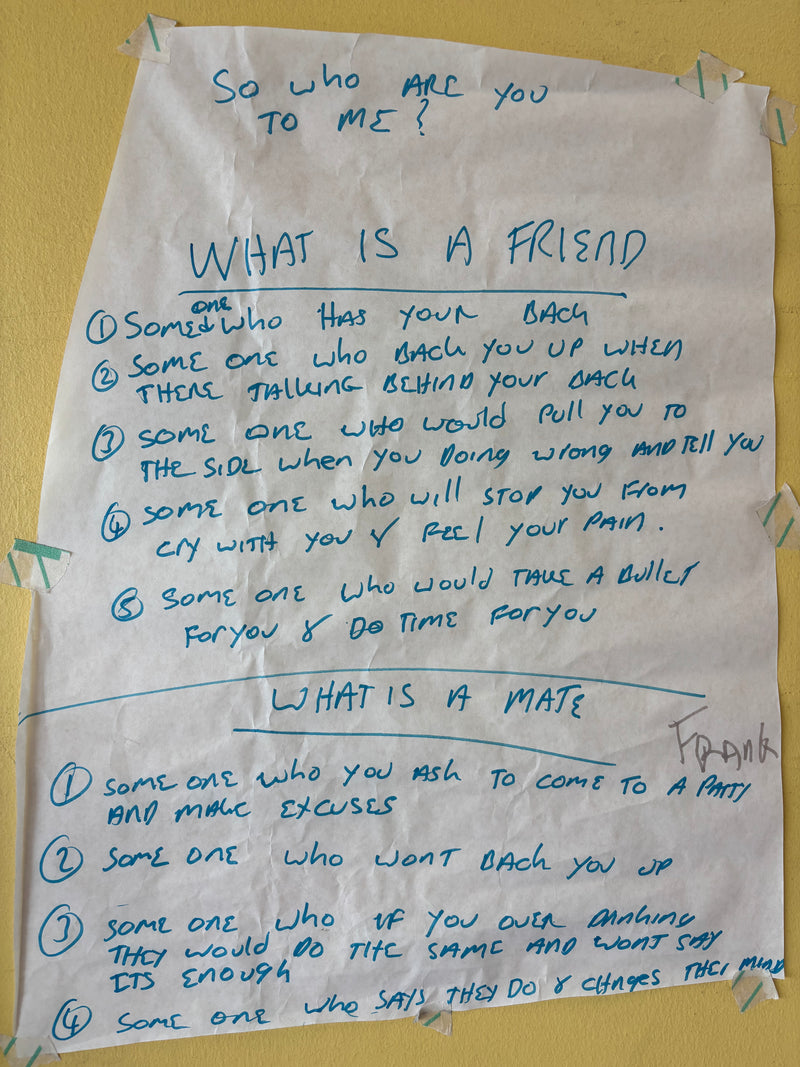 So who ARE YOU
TO ME?
WHAT IS A FRIEND
① SOME one WHO HAS YOUR BACK
② SOME ONE WHO BACK YOU UP WHEN
THERE TALKING BEHIND YOUR BACK
③ SOME ONE WHO WOULD PULL YOU TO
THE SIDE WHEN YOU DOING WRONG AND TELL YOU
④ SOME ONE WHO WILL STOP YOU FROM
CRY WITH YOU & FEEL YOUR PAIN.
⑤ SOME ONE WHO WOULD TAKE A BULLET
FOR YOU & DO TIME FOR YOU
WHAT IS A MATE
FRANK
① SOME ONE WHO YOU ASK TO COME TO A PATY
AND MAKE EXCUSES
② SOME ONE WHO WONT BACK YOU UP
③ SOME ONE WHO IF YOU OVER DRINKING
THEY WOULD DO THE SAME AND WONT SAY
ITS ENOUGH
④ SOME ONE WHO SAYS THEY DO & CHNGES THEI MIND